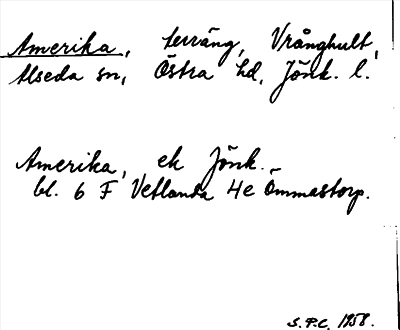 Amerika, terräng, Vrånghult,
Alseda sn, Östra hd, Jönk. l.
Amerika, ek Jönk.
bl. 6 F Vetlanda 4e Ömmastorp.
S.P.C. 1958.